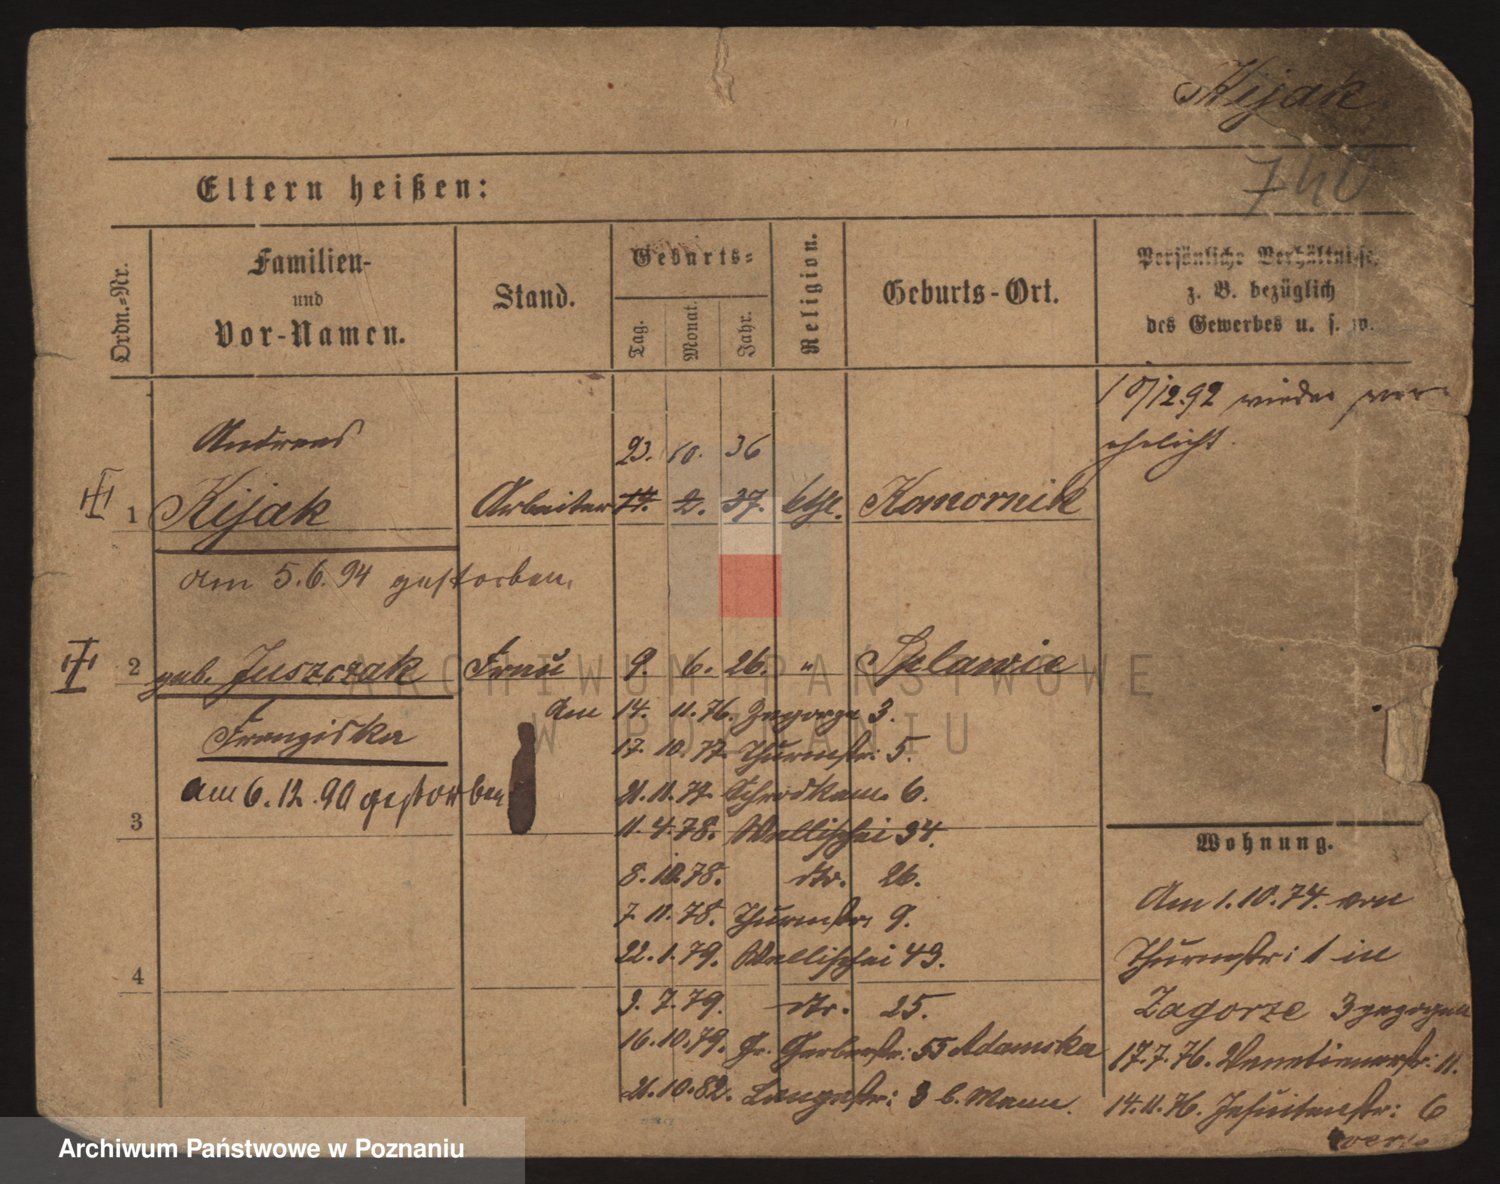 Kijak
740
Eltern heißen:
Ordn.-Nr.
Familien-
und
Vor-Namen.
Stand.
Geburts-
Tag.
Monat.
Jahr.
Religion.
Geburts-Ort.
Persönliche Verhältnisse,
z. B. bezüglich
des Gewerbes u. s. w.
10/12.92 wieder ver-
ehelicht.
Andreas
23. 10. 36
1 Kijak Arbeiter 2. 37. kth. Komornik
am 5.6.94 gestorben.
2 geb. Juszczak Frau 9. 6. 26. "
Franziska
am 6.12.90 gestorben
am 14. 11. 76. Zagorze 3.
17. 10. 77. Thurmstr: 5.
21. 11. 77. 6.
3
11. 4. 78. Wallischei 34.
8. 10. 78. dto. 26.
7. 11. 78. Thurmstr. 9.
22. 1. 79. Wallischei 43.
4
3. 7. 79. dto. 25.
16. 10. 79. Gr. Gerberstr: 55 Adamska
21. 10. 82. Langestr: 3 b. Mann.
Wohnung.
Am 1.10.74. von
Thurmstr: 1 in
Zagorze 3 gezogen
17.7.76. Venetianerstr: 11.
14.11.76. Jesuitenstr: 6
verte
ARCHIWUM PAŃSTWOWE
W POZNANIU
Archiwum Państwowe w Poznaniu